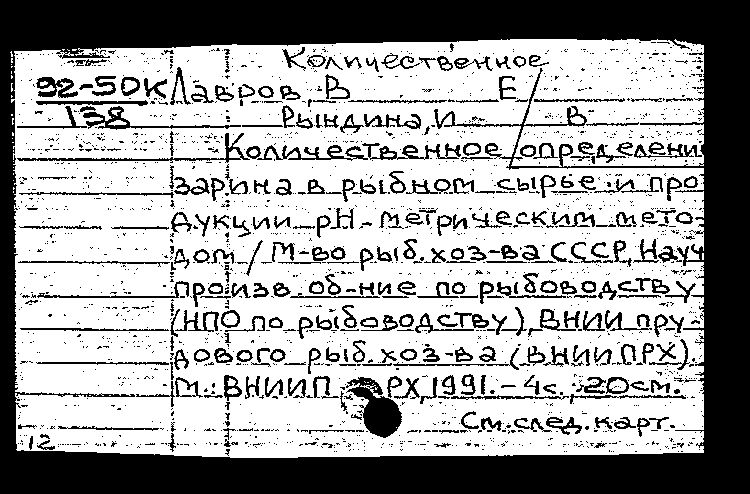 Количественное
92-5DK Лавров, В Е
138 Рындина, И В
Количественное определени
зарина в рыбном сырье и про
дукции рН-метрическим мето-
дом / М-во рыб. хоз-ва СССР, Науч
произв. об-ние по рыбоводству
(НПО по рыбоводству), ВНИИ пру-
дового рыб. хоз-ва (ВНИИПРХ).
М.: ВНИИП РХ, 1991. - 4с.; 20см.
См. след. карт.
12